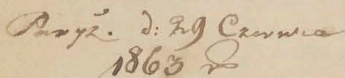 Paryż. d: 29 Czerwca
1863 r